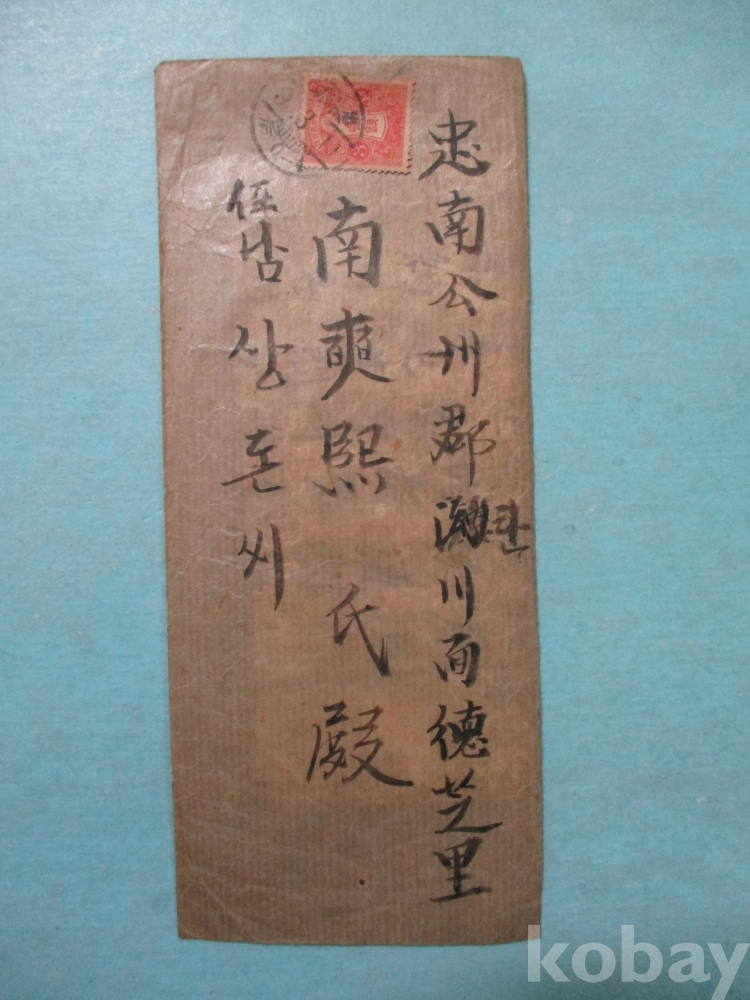 忠南公州郡灘川面德芝里
탄
南奭熙氏殿
侄남상돈씨
kobay